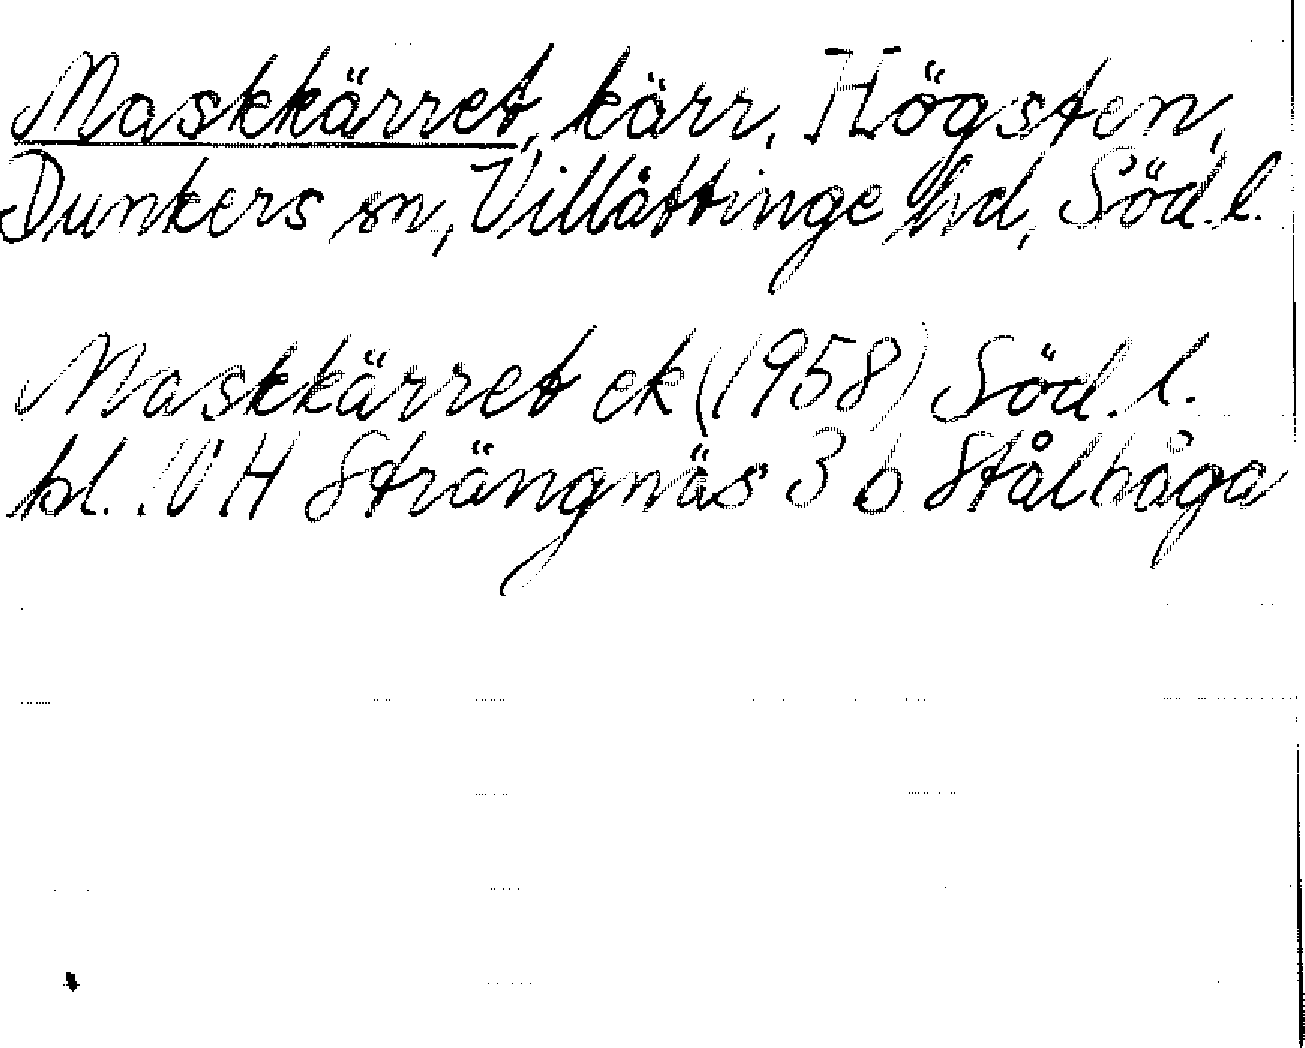 Maskkärret, kärr, Högsten,
Dunkers sn, Villåttinge hd, Söd. l.
Maskkärret ek (1958) Söd. l.
bl. 10 H Strängnäs 3 b Stålboga